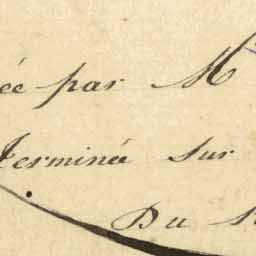 ée par M
Terminée sur
Du